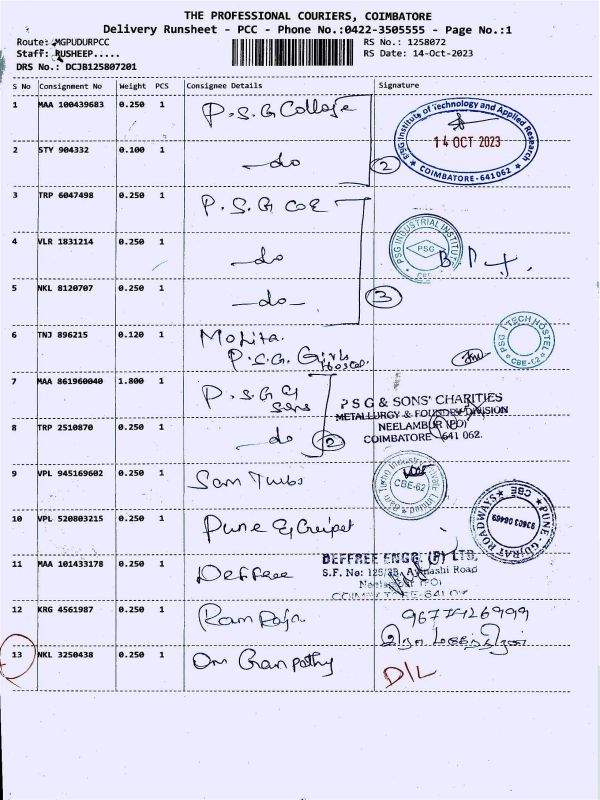 THE PROFESSIONAL COURIERS, COIMBATORE
Delivery Runsheet - PCC - Phone No.:0422-3505555 - Page No.:1
Route: MGPUDURPCC RS No.: 1258072
Staff: RUSHEEP..... RS Date: 14-Oct-2023
DRS No.: DCJB125807201
S No Consignment No Weight PCS Consignee Details Signature
1 MAA 100439683 0.250 1 P.S.G College
PSG Institute of Technology and Applied Research
14 OCT 2023
COIMBATORE-641062
2 STY 904332 0.100 1 do 2
3 TRP 6047498 0.250 1 P.S.G COE
PSG INDUSTRIAL INSTITUTE
PSG
4 VLR 1831214 0.250 1 do
5 NKL 8120707 0.250 1 do 3
6 TNJ 896215 0.120 1 Mohita.
P.S.G. Girls
Hostel.
PSG iTECH HOSTEL
CBE-62
7 MAA 861960040 1.800 1 P.S.G &
Sons
P S G & SONS' CHARITIES
METALLURGY & FOUNDRY DIVISION
NEELAMBUR (PO)
COIMBATORE 641 062.
8 TRP 2510870 0.250 1 do 2
9 VPL 945169602 0.250 1 Sam Turbo
CBE-62
10 VPL 520803215 0.250 1 Pune Gujrat
PUNE-GUJRAT ROADWAYS
CBE
11 MAA 101433178 0.250 1 Deffree
DEFFREE ENGG. (P) LTD.
S.F. No: Avinashi Road
12 KRG 4561987 0.250 1 Ram Raja
9677426999
13 NKL 3250438 0.250 1 Om Ganpathy D/L